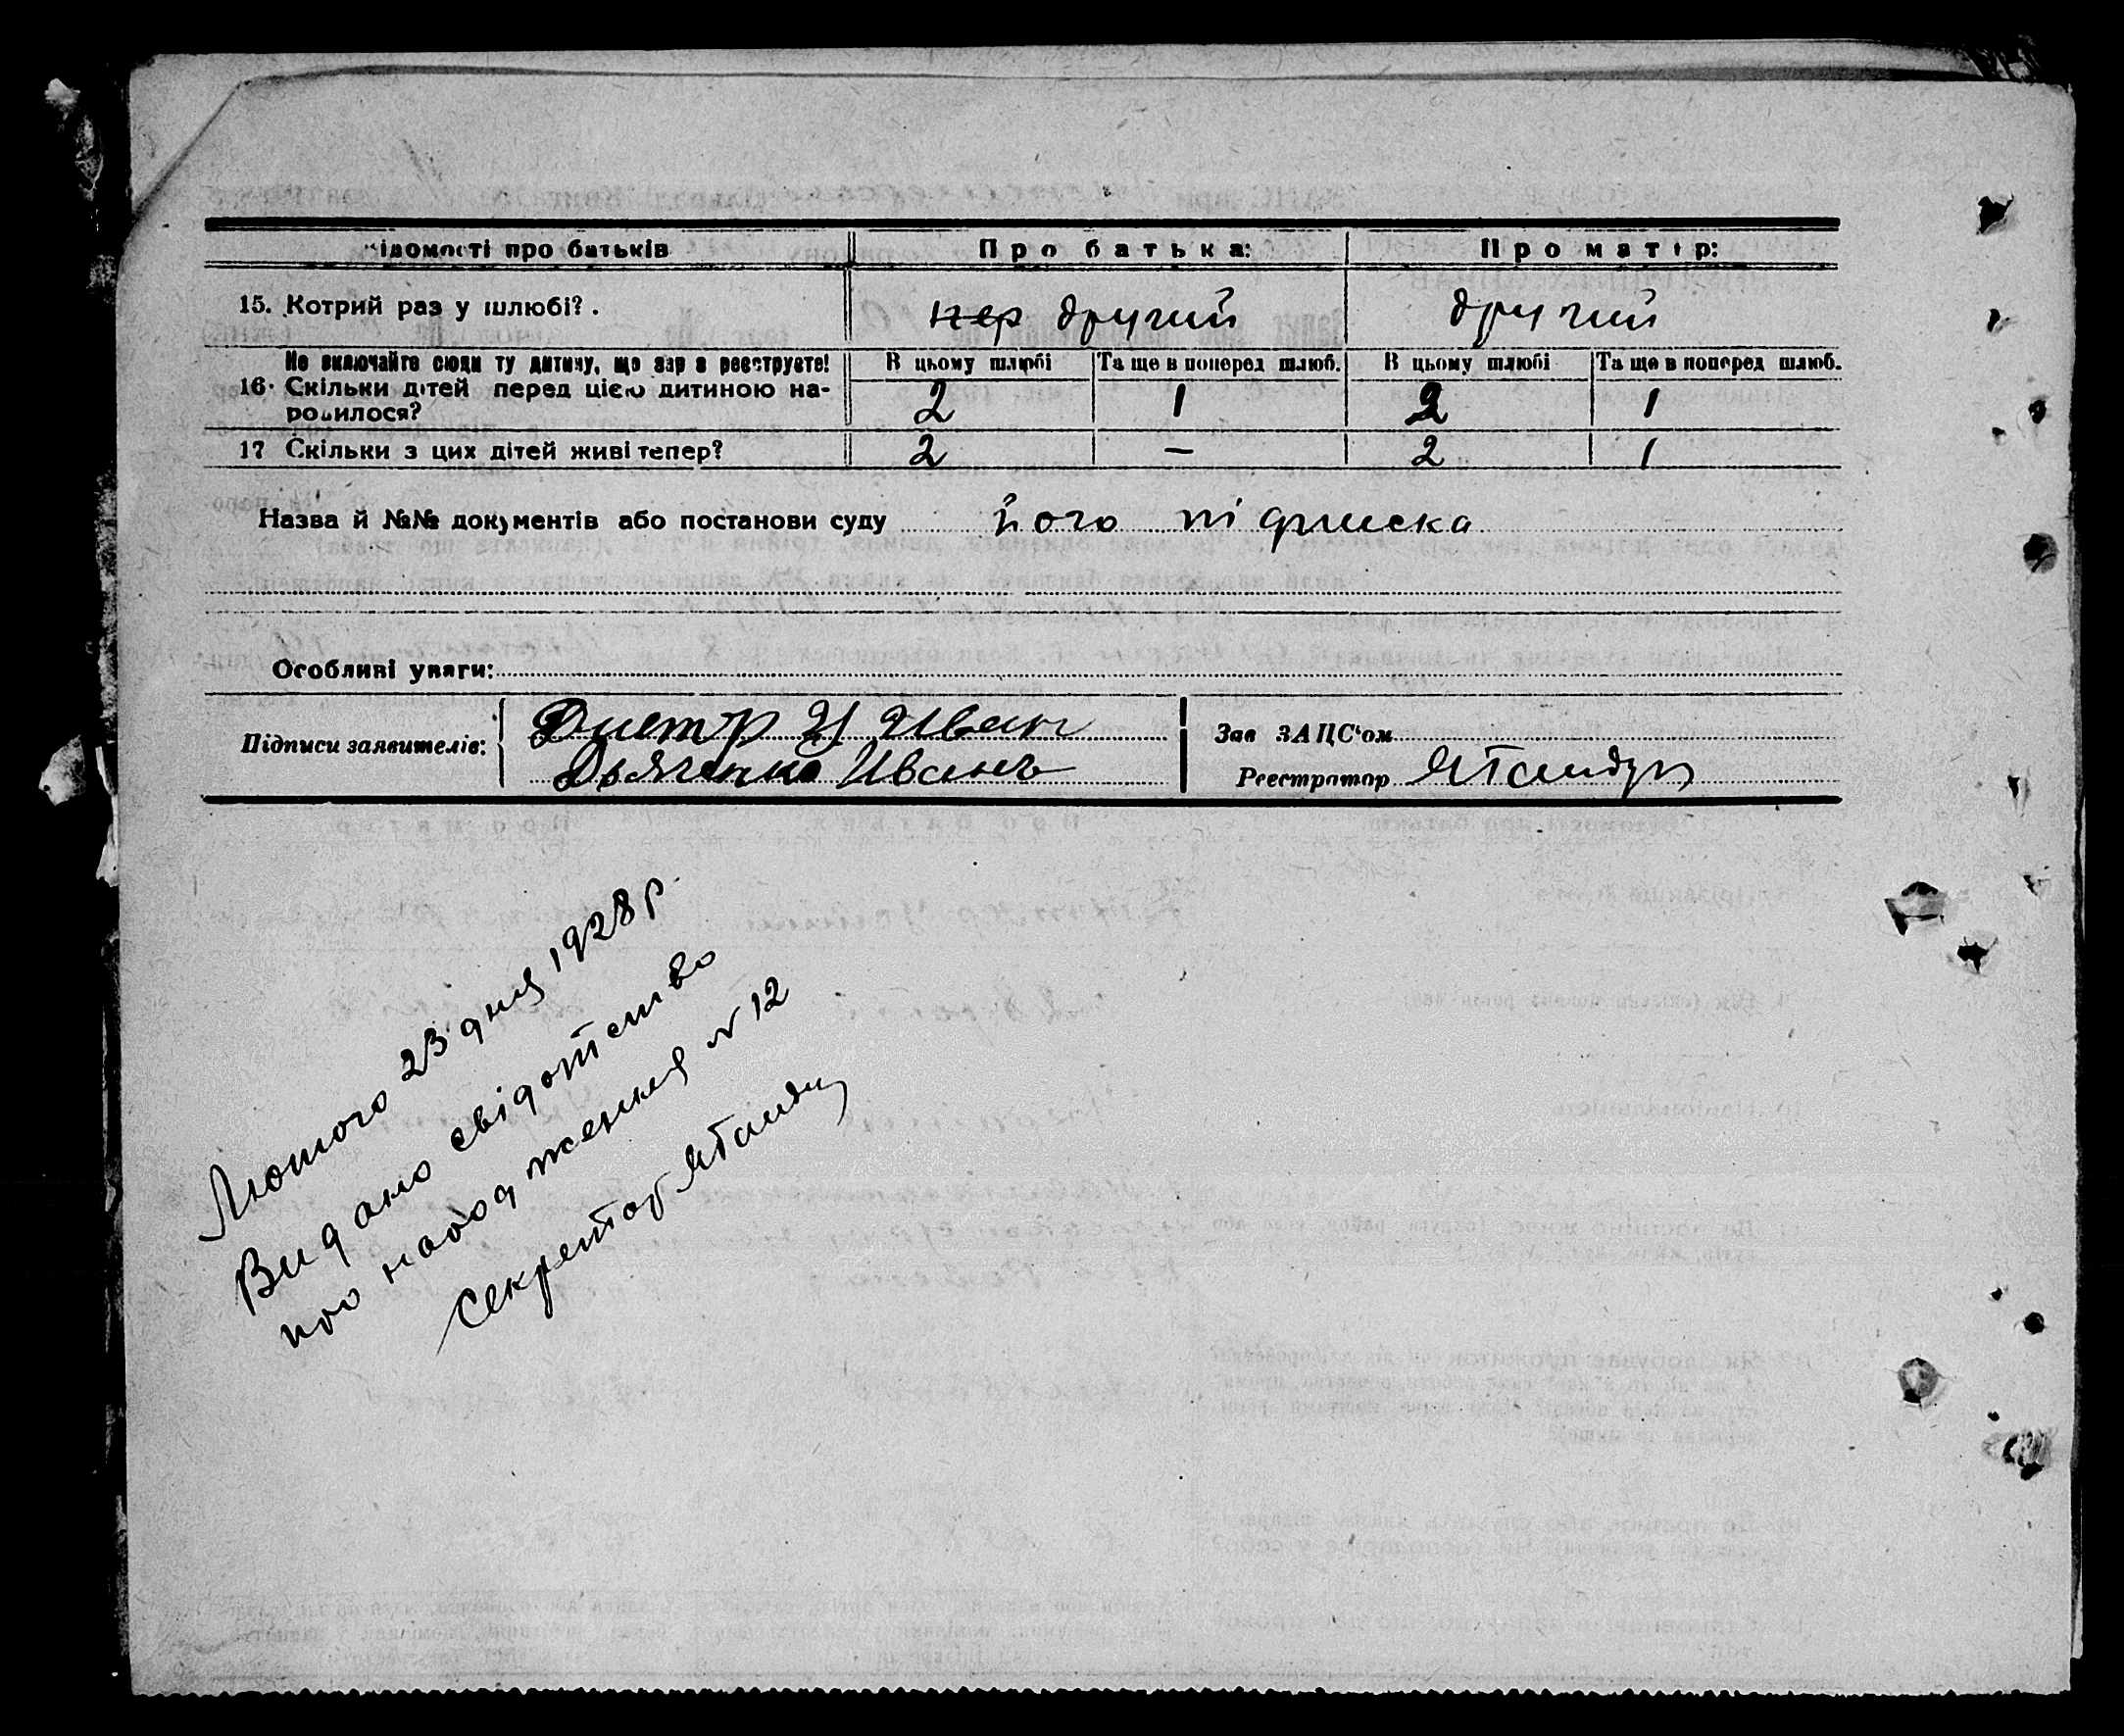 ідомості про батьків Про батька: Про матір:
15. Котрий раз у шлюбі? . пер другий другий
Не включайте сюди ту дитину, що зар з реєструєте! В цьому шлюбі Та ще в поперед шлюб. В цьому шлюбі Та ще в поперед шлюб.
16· Скільки дітей перед цією дитиною на-
родилося? 2 1 2 1
17 Скільки з цих дітей живі тепер? 2 — 2 1
Назва й №№ документів або постанови суду його підписка
Особливі уваги:
Підписи заявителів: Иван
Дьяченко Иванъ
Зав ЗАЦС'ом
Реєстратор
Лютого 23 дня 1928 р.
Видано свідотство
про народження N 12
Секретар